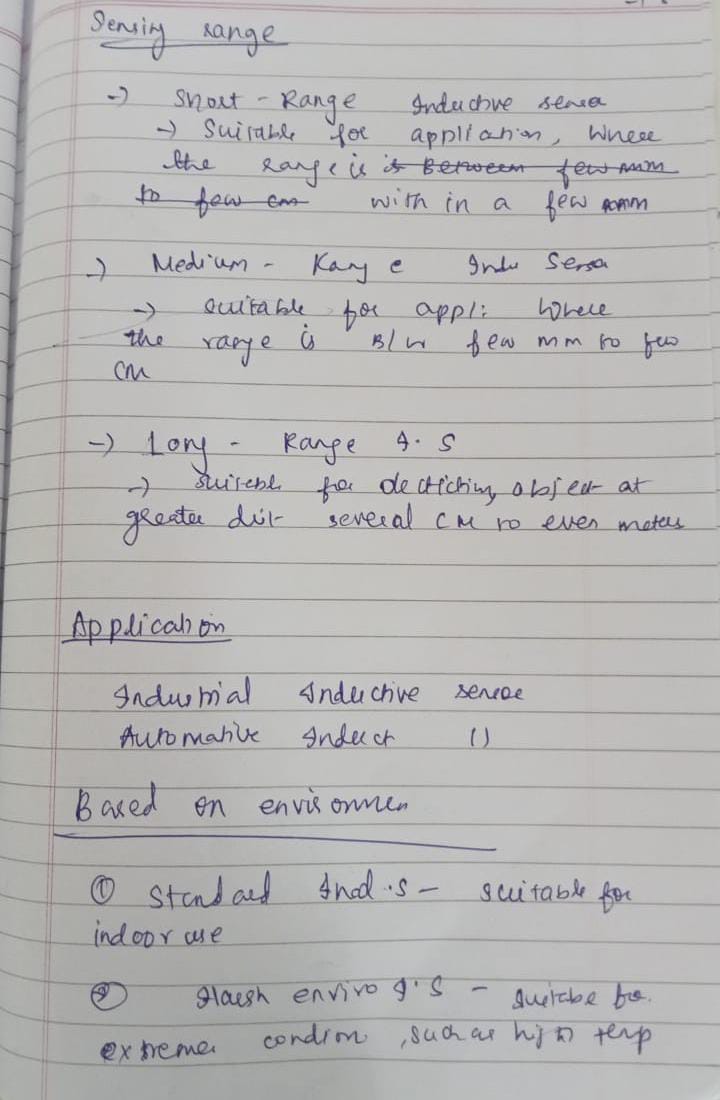 Sensing range
→ Short - Range Inductive sensor
→ Suitable for appliation, where
the range is is Between few mm
to few cm with in a few mm
→ Medium - Range Indu Sensor
→ suitable for appli: where
the range is B/w few mm to few
CM
→ Long - Range I.S
→ suiteble for decticting object at
greater dist several CM to even meters
Application
Industrial Inductive sensor
Automative Induct ()
Based on environmen
① Standard Ind.S - suitable for
indoor use
② Harsh enviro I.S - suitabe for.
extreme condion, such as high temp